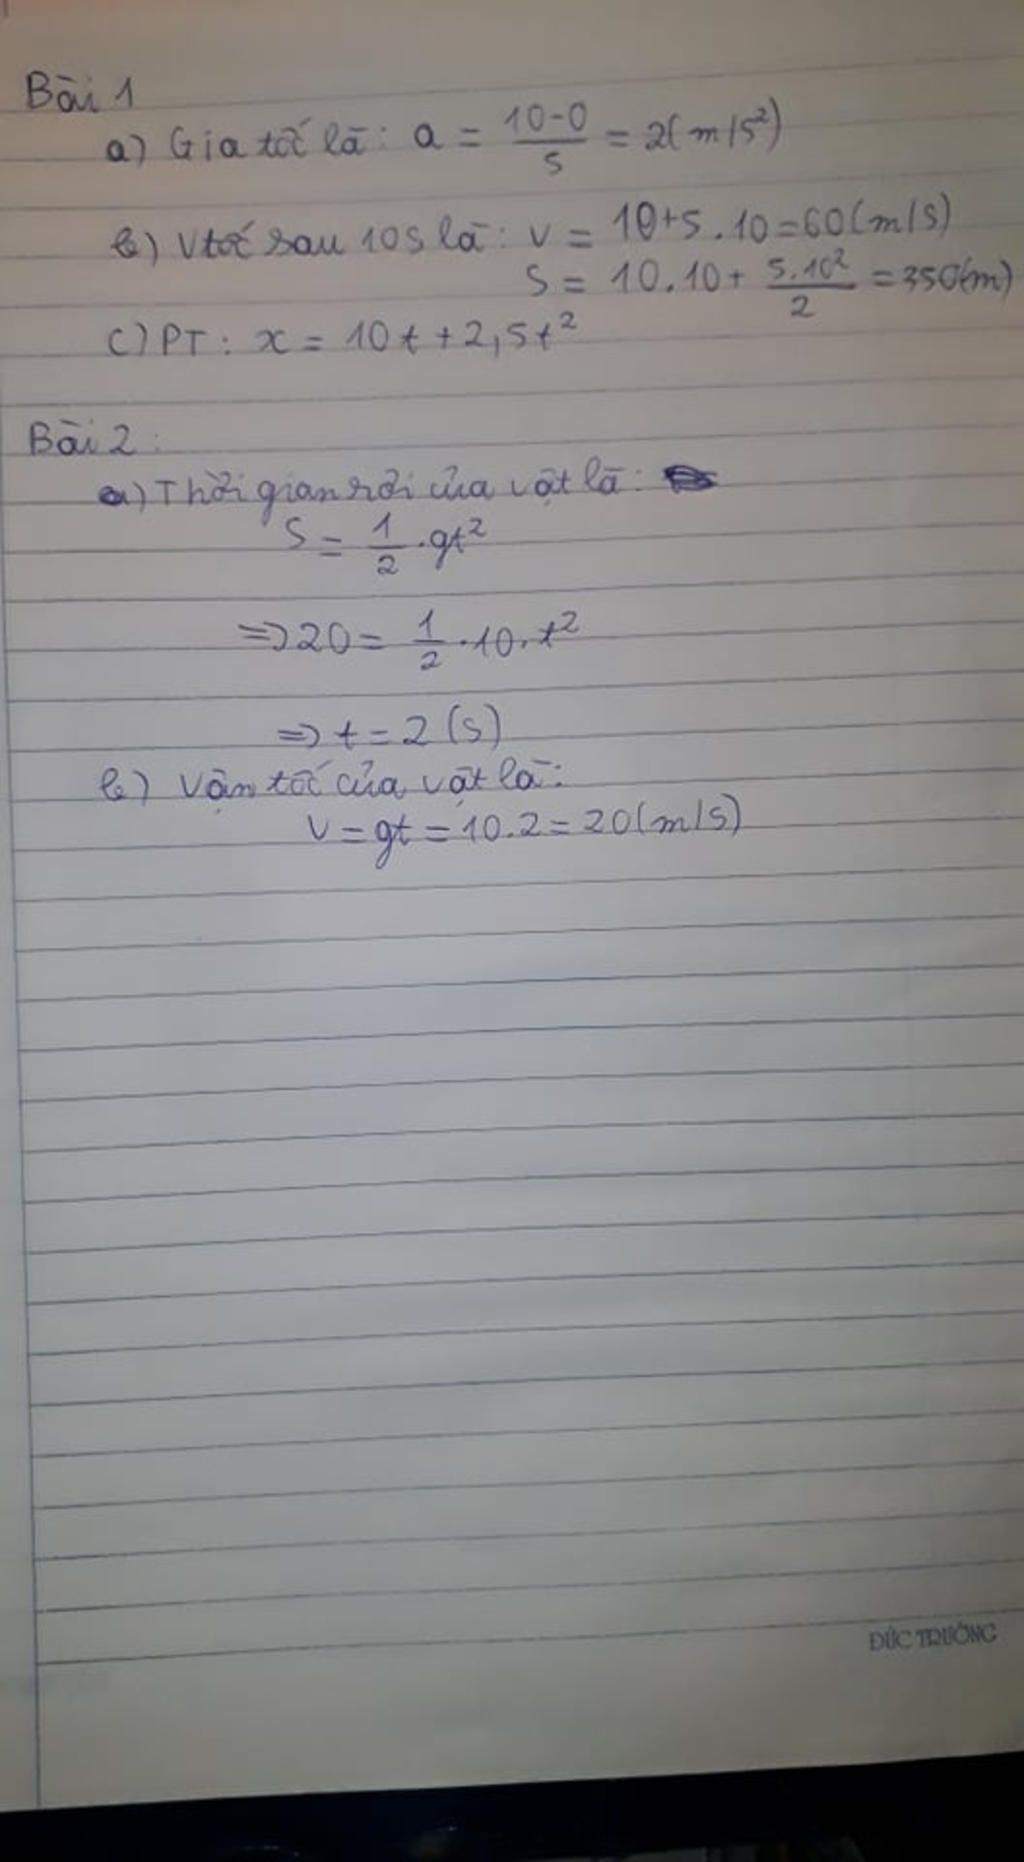 Bài 1
a) Gia tốc là: a = 10-0/5 = 2(m/s²)
b) Vtốc sau 10s là: v = 10+5.10=60(m/s)
S = 10.10+ 5.10²/2 = 350(m)
c) PT: x = 10t + 2,5t²
Bài 2:
a) Thời gian rơi của vật là:
S = 1/2 .gt²
=> 20 = 1/2 .10.t²
=> t = 2 (s)
b) Vận tốc của vật là:
V = gt = 10.2 = 20(m/s)
ĐỨC TRƯỜNG